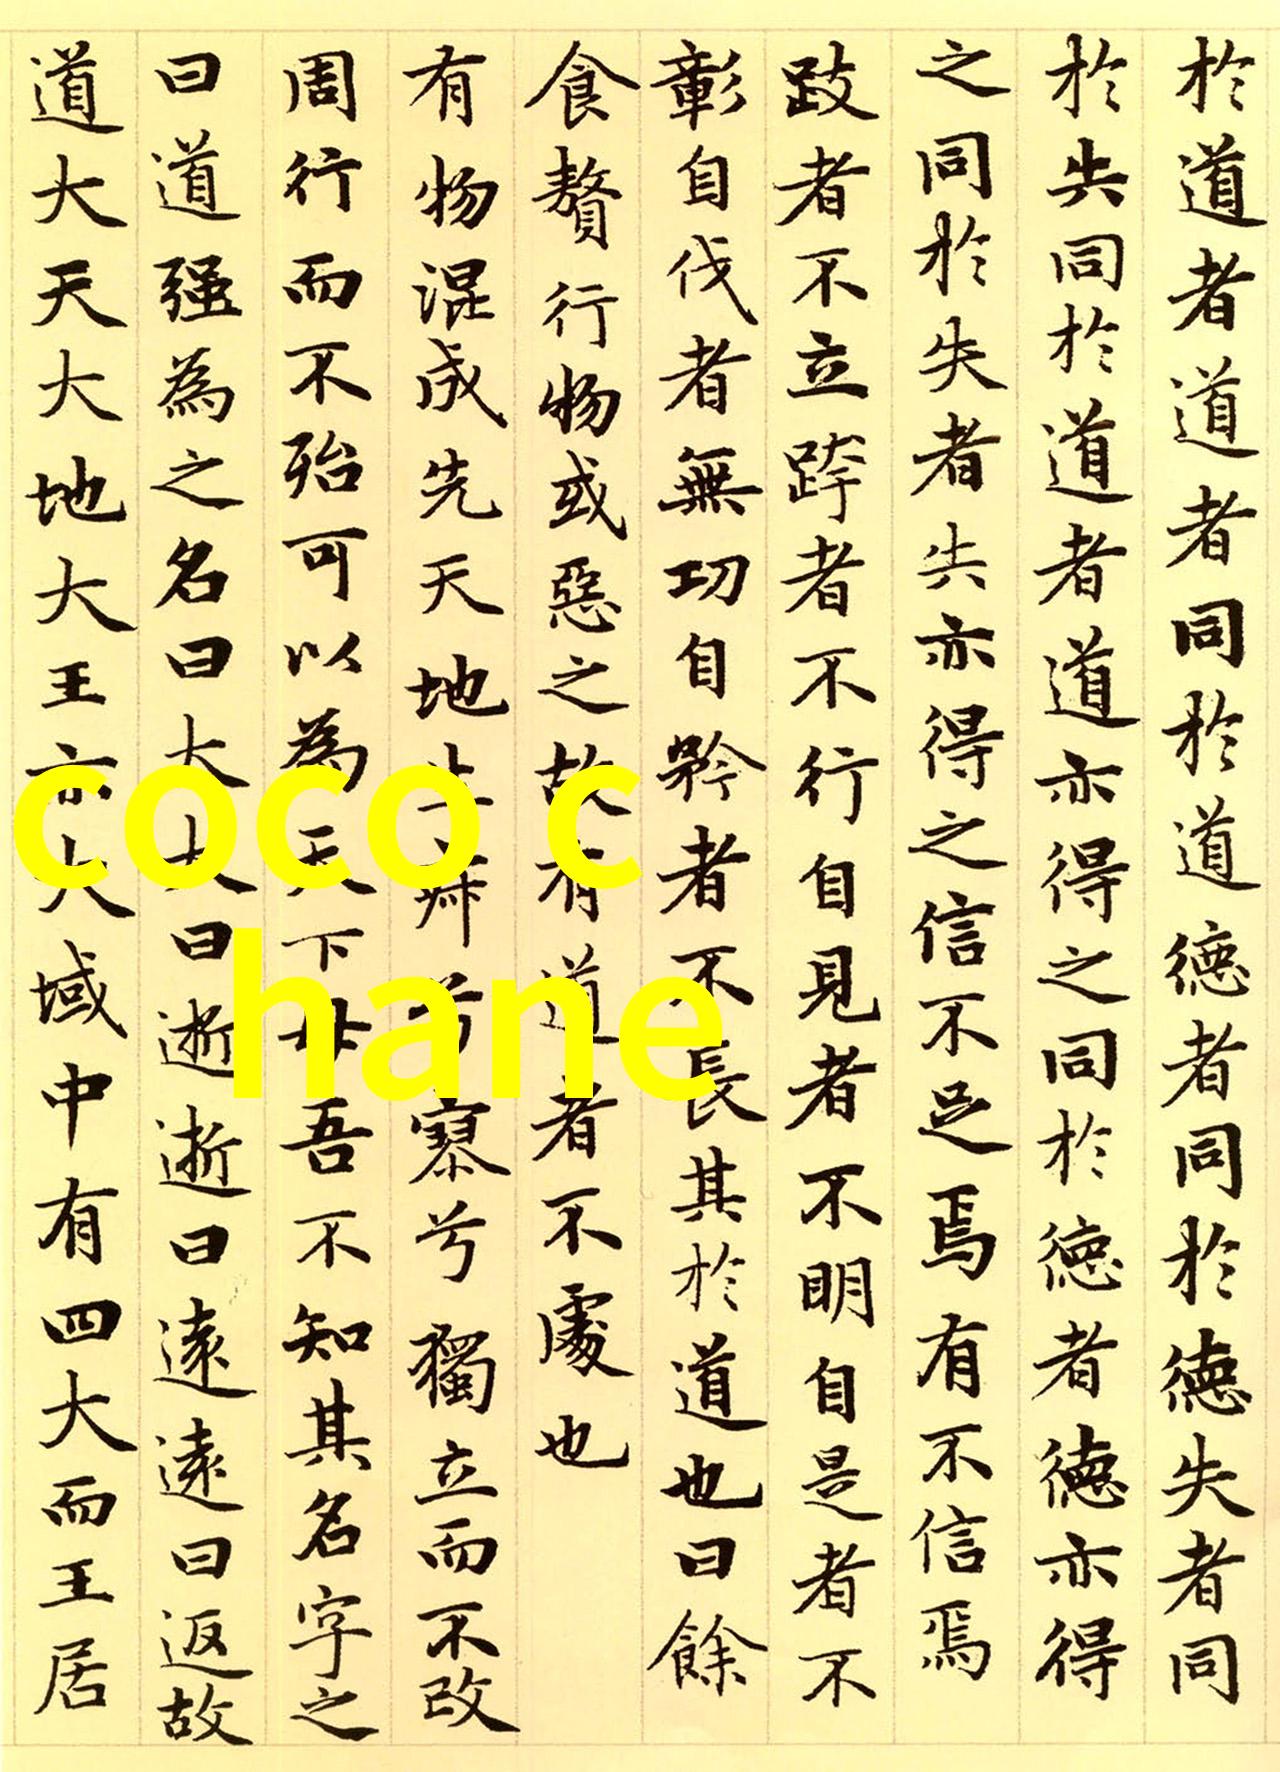 於道者道者同於道德者同於德失者同
於失同於道者道亦得之同於德者德亦得
之同於失者失亦得之信不足焉有不信焉
跂者不立跨者不行自見者不明自是者不
彰自伐者無功自矜者不長其於道也曰餘
食贅行物或惡之故有道者不處也
有物混成先天地生寂兮寥兮獨立而不改
周行而不殆可以為天下母吾不知其名字之
曰道强為之名曰大大曰逝逝曰遠遠曰返故
道大天大地大王亦大域中有四大而王居
coco c
hane